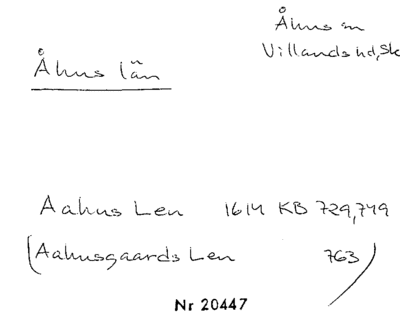 Åhus sn
Villands hd, Sk
Åhus län
Aahus Len 1614 KB 729,749
(Aahusgaards Len 763)
Nr 20447